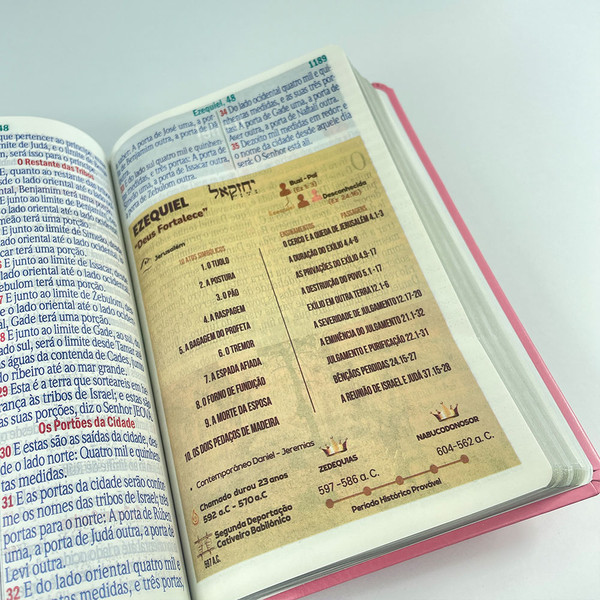 48
que pertencer ao príncipe
O Restante das Tribos
E, quanto ao restante das
Benjamim terá uma porção.
E junto ao limite de
meão terá uma porção.
E junto ao limite de Simeão, desde
car terá uma porção.
E junto ao limite de Issacar, desde
ebulom terá uma porção.
E junto ao limite de Zebulom, des-
e o lado oriental até o lado ociden-
tal, Gade terá uma porção.
E junto ao limite de Gade, ao sul, do
lado sul, será o limite desde Tamar até
as águas da contenda de Cades, junto
do ribeiro até ao mar grande.
29 Esta é a terra que sorteareis em he-
rança às tribos de Israel; e estas são
as suas porções, diz o Senhor JEOVÁ.
Os Portões da Cidade
30 E estas são as saídas da cidade, des-
de o lado norte: Quatro mil e quinhen-
tas medidas.
31 E as portas da cidade serão confor-
me os nomes das tribos de Israel; três
portas para o norte: A porta de Rúben,
uma, a porta de Judá outra, a porta de
Levi outra.
32 E do lado oriental quatro mil e
entas medidas, e três portas,
Ezequiel, 48
1189
uber: A porta de José uma, a por-
de Benjamim outra, a porta de Dã
lado sul quatro mil e quinhen-
medidas, e três portas: A porta
Simeão uma, a porta de Issacar
outra, a porta de Zebulom outra.
34 Do lado ocidental quatro mil e qui-
nhentas medidas, e as suas três por-
tas: A porta de Gade uma, a porta de
Aser outra, a porta de Naftali outra.
35 Dezoito mil medidas em redor; e
o nome da cidade desde aquele dia
será: O Senhor está ali.
EZEQUIEL
"Deus Fortalece"
יחזקאל
Buzi - Pai
(Ez 1:3)
Desconhecido
(Ez 24:16)
Jerusalém
10 ATOS SIMBÓLICOS
1. O TIJOLO
2. A POSTURA
3. O PÃO
4. A RASPAGEM
5. A BAGAGEM DO PROFETA
6. O TREMOR
7. A ESPADA AFIADA
8. O FORNO DE FUNDIÇÃO
9. A MORTE DA ESPOSA
10. OS DOIS PEDAÇOS DE MADEIRA
ENSINAMENTOS PASSAGENS
O CERCO E A QUEDA DE JERUSALÉM 4.1-3
A DURAÇÃO DO EXÍLIO 4.4-8
AS PRIVAÇÕES DO EXÍLIO 4.9-17
A DESTRUIÇÃO DO POVO 5.1-17
EXÍLIO EM OUTRA TERRA 12.1-6
A SEVERIDADE DE JULGAMENTO 12.17-20
A EMINÊNCIA DO JULGAMENTO 21.1-32
JULGAMENTO E PURIFICAÇÃO 22.1-31
BÊNÇÃOS PERDIDAS 24.15-27
A REUNIÃO DE ISRAEL E JUDÁ 37.15-28
• Contemporâneo Daniel - Jeremias
Chamado durou 23 anos
592 a.C - 570 a.C
Segunda Deportação
Cativeiro Babilônico
597 A.C.
ZEDEQUIAS
597 -586 a. C.
NABUCODONOSOR
604-562 a. C.
Período Histórico Provável